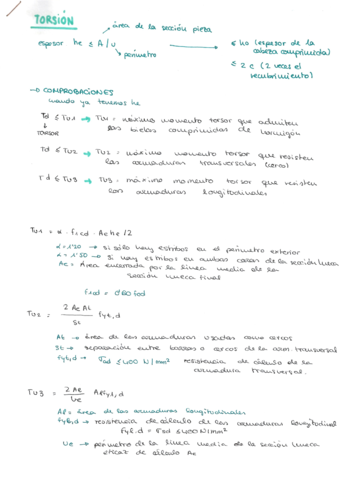 TORSIÓN
área de la sección pieza
espesor he ≤ A/u
perímetro
≤ ho (espesor de la cabeza comprimida)
≤ 2c (2 veces el recubrimiento)
→ COMPROBACIONES
cuando ya tenemos he
Td ≤ Tu1 → Tu1 = máximo momento torsor que admiten
TORSOR
las bielas comprimidas de hormigón
Td ≤ Tu2 → Tu2 = máximo momento torsor que resisten
las armaduras transversales (cercos)
Td ≤ Tu3 → Tu3 = máximo momento torsor que resisten
las armaduras longitudinales
Tu1 = α · f1cd · Ae he / 2
α = 1'20 → si sólo hay estribos en el perímetro exterior
α = 1'50 → si hay estribos en ambas caras de la sección hueca
Ae = Área encerrada por la línea media de la
sección hueca final
f1cd = 0'60 fcd
Tu2 = 2 Ae At / St fyt,d
At → área de las armaduras usadas como cercos
St → separación entre barras o cercos de la arm. transversal
fyt,d → ≤ 400 N/mm² resistencia de cálculo de la
armadura transversal.
Tu3 = 2 Ae / Ue Al fyl,d
Al = área de las armaduras longitudinales
fyl,d → resistencia de cálculo de las armaduras longitudinal
fyl,d = fsd ≤ 400 N/mm²
Ue → perímetro de la línea media de la sección hueca
eficaz de cálculo Ae